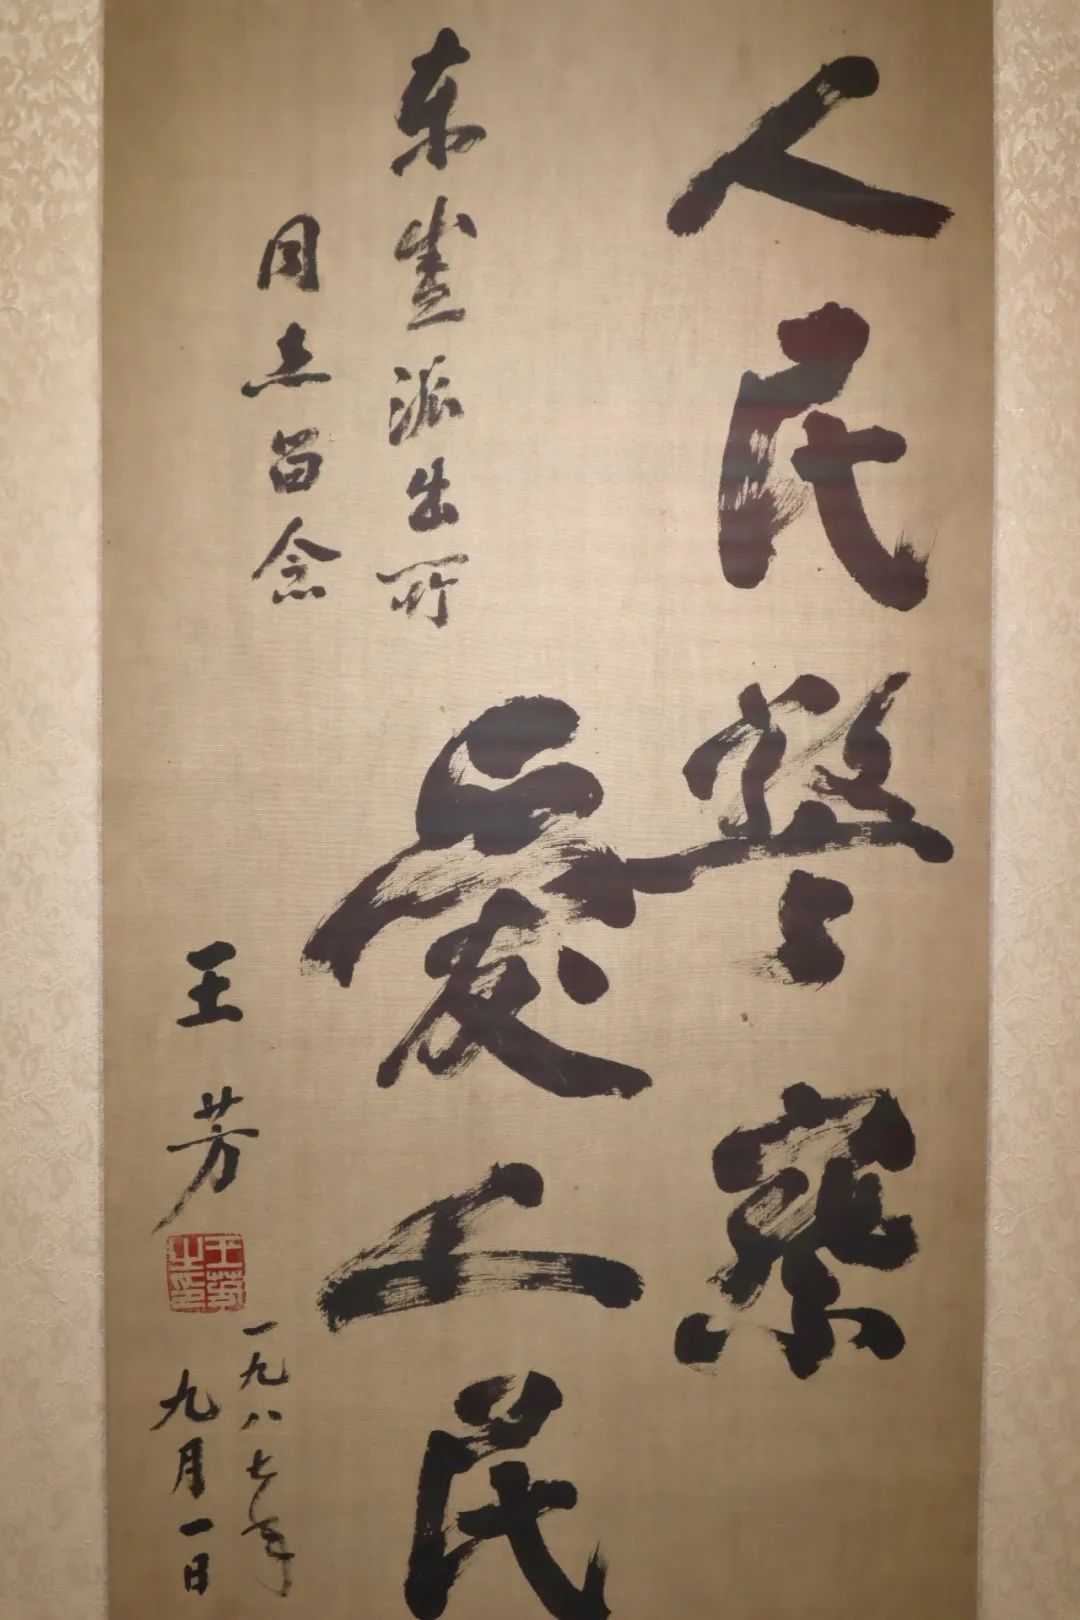 人民警察
爱人民
东派出所
同志留念
王芳
王芳之印
一九八七年
九月一日